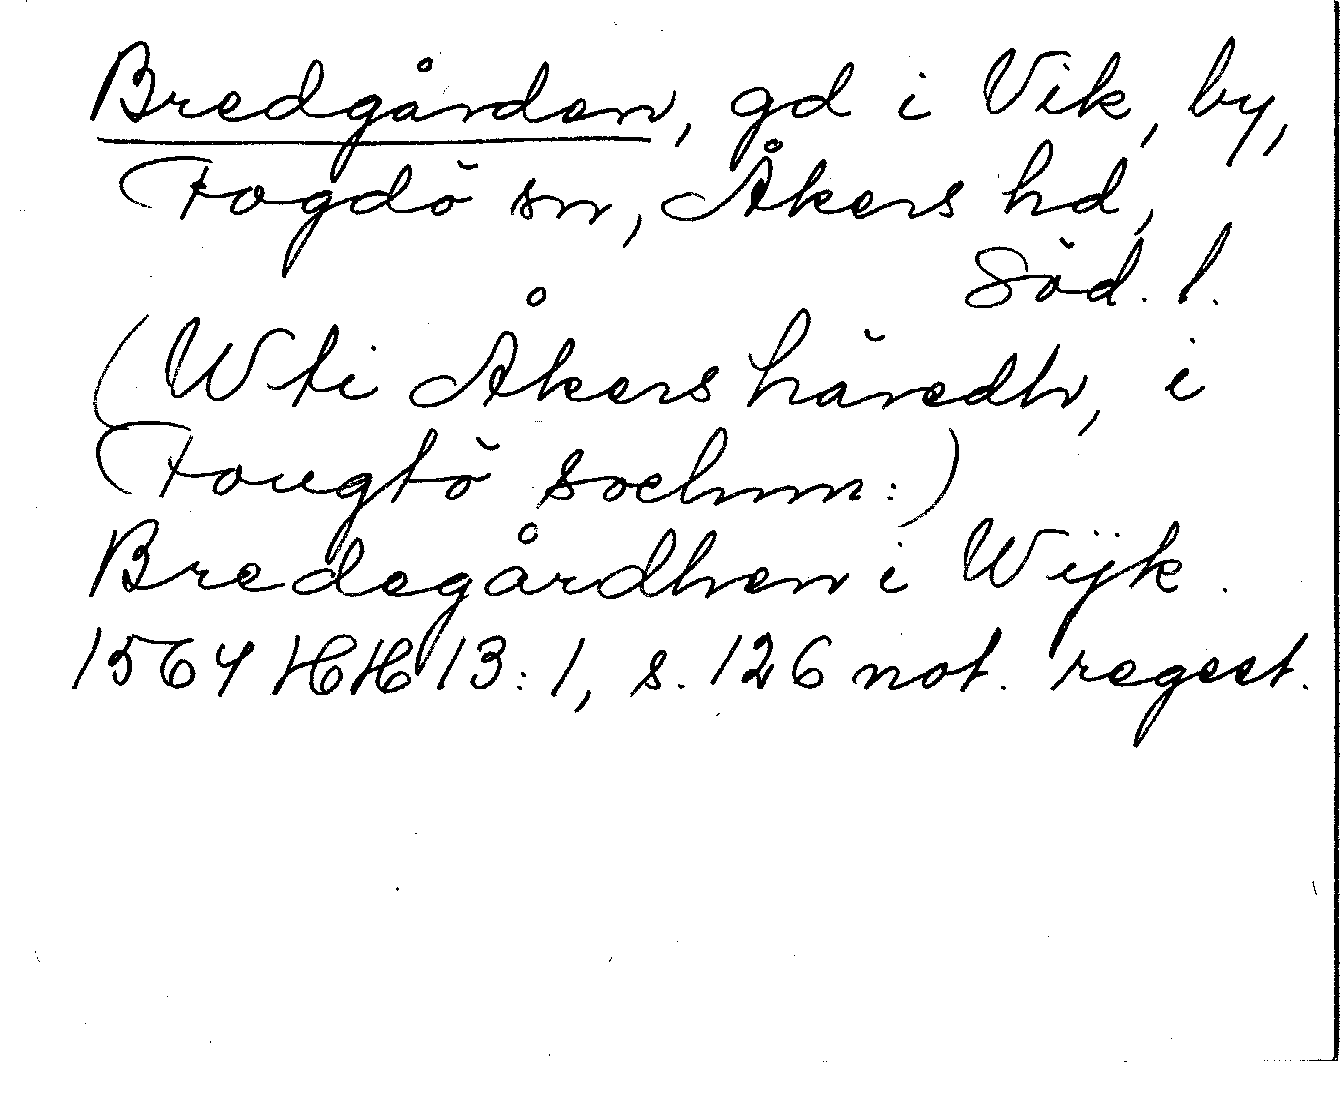 Bredgården, gd i Vik, by,
Fogdö sn, Åkers hd,
Söd. l.
(Wti Åkers häredh, i
Fougtö sochnn:)
Bredegårdhen i Wijk.
1564 HH 13:1, s. 126 not. regest.